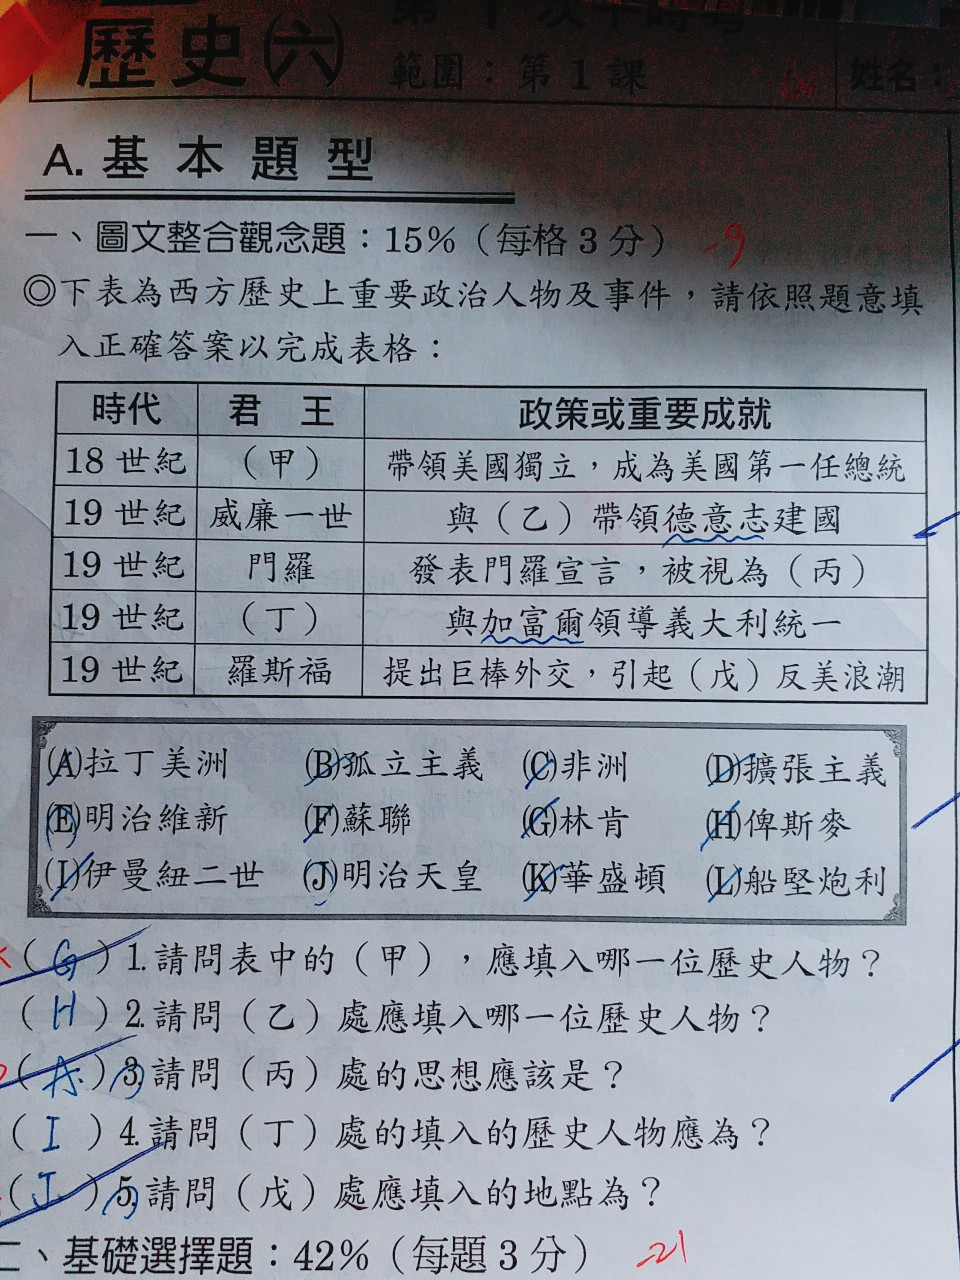 歷史(六)
第1次平時考
範圍：第1課
姓名：
A.基本題型
一、圖文整合觀念題：15%（每格3分） -9
◎下表為西方歷史上重要政治人物及事件，請依照題意填
入正確答案以完成表格：
時代 君 王 政策或重要成就
18世紀 （甲） 帶領美國獨立，成為美國第一任總統
19世紀 威廉一世 與（乙）帶領德意志建國
19世紀 門羅 發表門羅宣言，被視為（丙）
19世紀 （丁） 與加富爾領導義大利統一
19世紀 羅斯福 提出巨棒外交，引起（戊）反美浪潮
(A)拉丁美洲 (B)孤立主義 (C)非洲 (D)擴張主義
(E)明治維新 (F)蘇聯 (G)林肯 (H)俾斯麥
(I)伊曼紐二世 (J)明治天皇 (K)華盛頓 (L)船堅炮利
（G）1.請問表中的（甲），應填入哪一位歷史人物？
（H）2.請問（乙）處應填入哪一位歷史人物？
（A）3.請問（丙）處的思想應該是？
（I）4.請問（丁）處的填入的歷史人物應為？
（J）5.請問（戊）處應填入的地點為？
二、基礎選擇題：42%（每題3分） -21